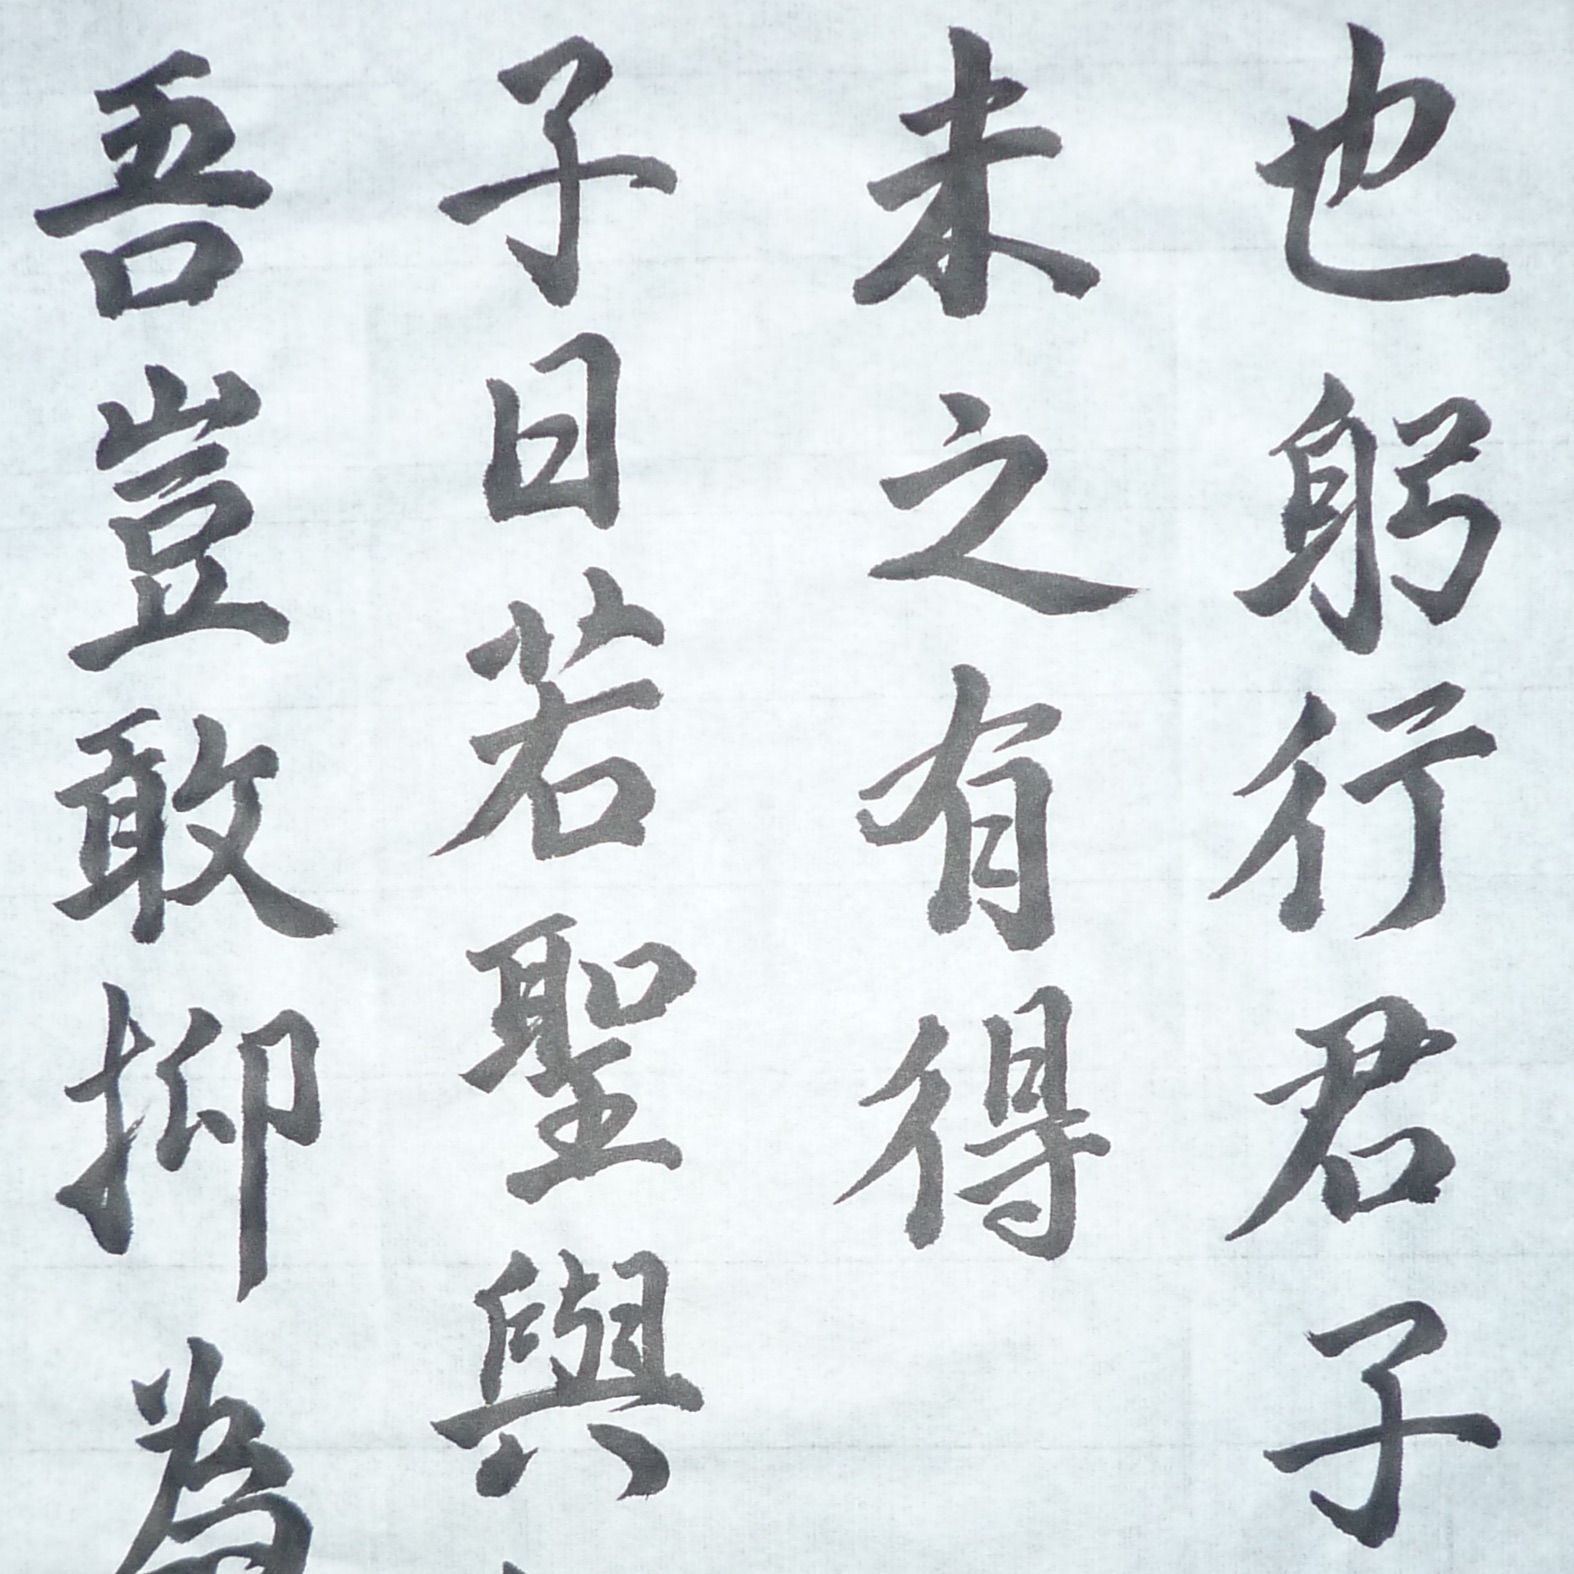 也躬行君子
未之有得
子曰若聖與
吾豈敢抑為